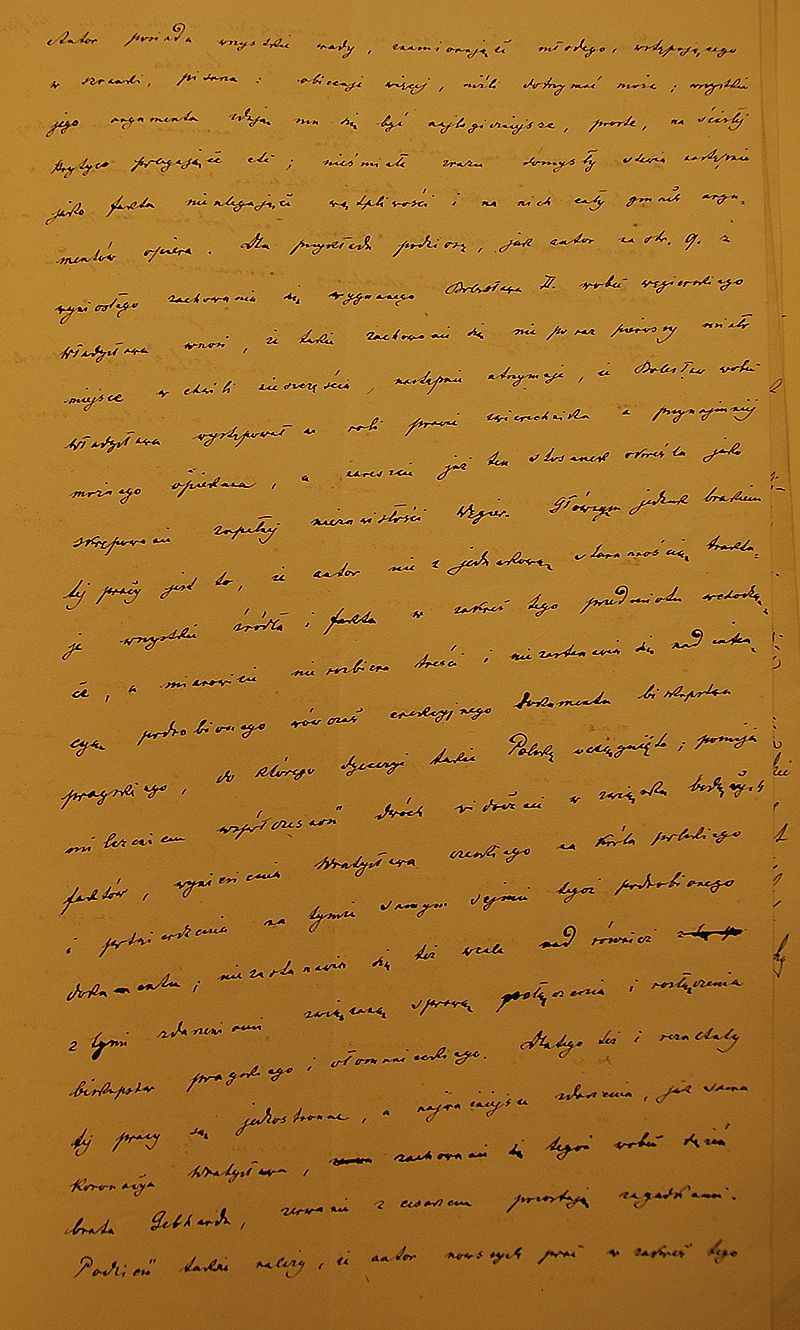 Autor posiada wszystkie wady, znamionujące młodego, wstępującego
w szranki, pisarza: obiecuje więcej, niźli dotrzymać może; wszystkie
jego argumenta zdają mu się być najlogiczniejsze, proste, na ścisłej
krytyce polegające etc; nieśmiałe zrazu domysły stawia następnie
jako fakta nieulegające wątpliwości i na nich cały gmach argu-
mentów opiera. Dla przykładu podniosę, jak autor na str. 9. z
wyniosłego zachowania się wygnanego Bolesława II. wobec węgierskiego
Władysława wnosi, że takie zachowanie się nie po raz pierwszy miało
miejsce w chwili nieszczęścia, następnie utrzymuje, że Bolesław wobec
Władysława występował w roli prawie zwierzchnika a przynajmniej
możnego opiekuna, a nareszcie już ten stosunek określa jako
skrępowanie zupełnej niezawisłości Węgier. Głównym jednak brakiem
tej pracy jest to, że autor nie z jednakową starannością traktu-
je wszystkie źródła i fakta w zakres tego przedmiotu wchodzą-
ce, a mianowicie nie rozbiera treści i nie zastanawia się nad inten-
cyą podrobionego wówczas erekcyjnego dokumentu biskupstwa
pragskiego, do którego dyecezyi także Polskę wciągnięto; pomija
milczeniem współczesność dwóch widocznie w związku będących
faktów, wyniesienia Wratysława czeskiego na króla polskiego
i potwierdzenia na tymże samym sejmie tegoż podrobionego
dokumentu; nie zastanawia się też wcale nad również
z tymi zdarzeniami związaną sprawą połączenia i rozłączenia
biskupstw pragskiego i ołomunieckiego. Dlatego też i rezultaty
tej pracy są jednostronne, a najważniejsze zdarzenia, jak sama
koronacya Wratysława, zachowanie się tegoż wobec
brata Gebharda, zerwanie z cesarzem pozostają zagadkami.
Podnieść także należy, że autor nowszych prac w zakres tego